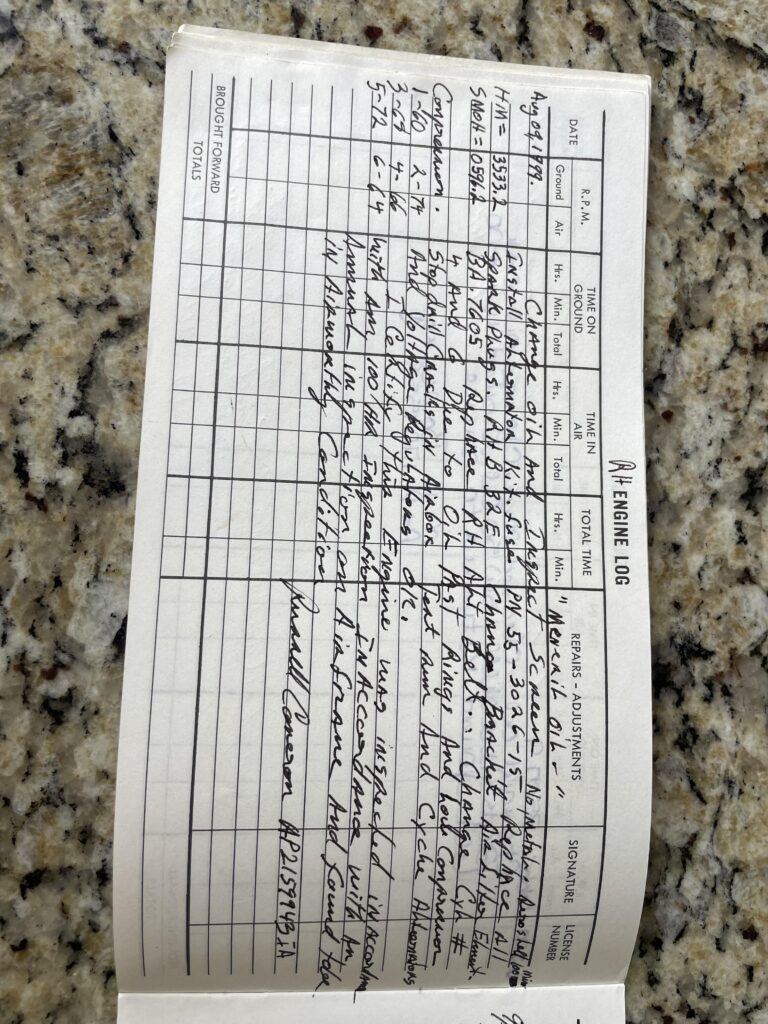 RH ENGINE LOG
DATE R.P.M. TIME ON GROUND TIME IN AIR TOTAL TIME REPAIRS - ADJUSTMENTS SIGNATURE LICENSE NUMBER
Ground Air Hrs. Min. Total Hrs. Min. Total Hrs. Min. "
Aug 09, 1999. Change oil And Inspect Screen No metal.
HM = 3533.2 Install Alternator Kit. fuse PN 55-3026-15 Replace All
SMOH = 0596.2 Spark Plugs. RHB 32E Change Bracket Air Filter Element
BA-7605. Replace RH Alt Belt. Change Cyl #
4 And 6 Due to Oil Past Rings And low Compression
Compression. Stop drill Cracks in Airbox Test run And Cycle Alternators
1-60 2-74 And Voltage Regulators OK.
3-69 4-66 I Certify this Engine was inspected in Accordance
5-72 6-64 with An 100 HR Inspection In Accordance with An
Annual inspection on Airframe And found to be
in Airworthy Condition
Russell Cameron AP2159943IA
BROUGHT FORWARD
TOTALS